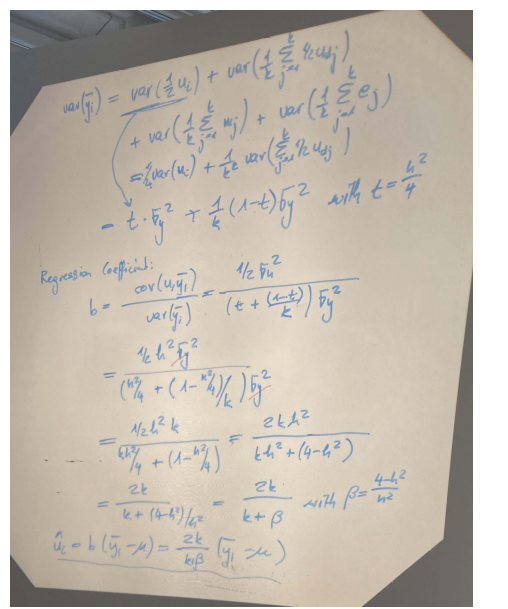 var(ȳᵢ) = var(½ uᵢ) + var(1/k Σ_{j=1}^{k} ½ u_{dj})
+ var(1/k Σ_{j=1}^{k} m_j) + var(1/k Σ_{j=1}^{k} e_j)
= ¼ var(uᵢ) + 1/k² var(Σ_{j=1}^{k} ½ u_{dj})
= t · σ_y² + 1/k (1-t) σ_y² with t = h²/4
Regression Coefficient:
b = cov(u,ȳᵢ) / var(ȳᵢ) = 1/2 σ_u² / (t + (1-t)/k) σ_y²
= 1/2 h² σ_y² / (h²/4 + (1 - h²/4)/k) σ_y²
= 1/2 h² k / kh²/4 + (1 - h²/4) = 2kh² / kh² + (4-h²)
= 2k / k + (4-h²)/h² = 2k / k + β with β = 4-h² / h²
ûᵢ = b (ȳᵢ - μ) = 2k / k+β (ȳᵢ - μ)